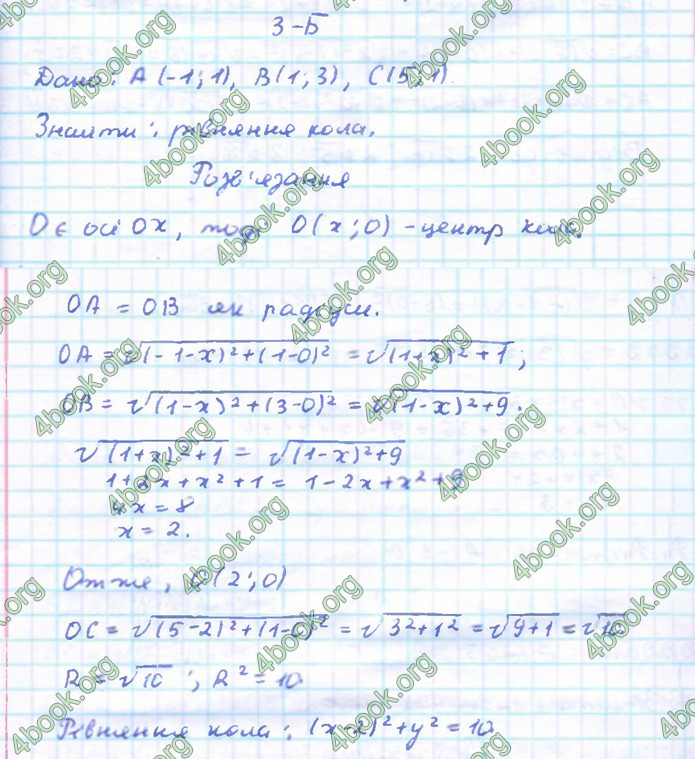 3-Б
Дано: A(-1; 1), B(1; 3), C(5; 1).
Знайти: рівняння кола.
Розв'язання
O є осі OX, тоді O(x; 0) - центр кола.
OA = OB як радіуси.
OA = √(-1-x)²+(1-0)² = √(1+x)²+1;
OB = √(1-x)²+(3-0)² = √(1-x)²+9.
√(1+x)²+1 = √(1-x)²+9
1+2x+x²+1 = 1-2x+x²+9
4x = 8
x = 2.
Отже, O(2; 0)
OC = √(5-2)²+(1-0)² = √3²+1² = √9+1 = √10
R = √10; R² = 10.
Рівняння кола: (x-2)²+y² = 10.
4book.org